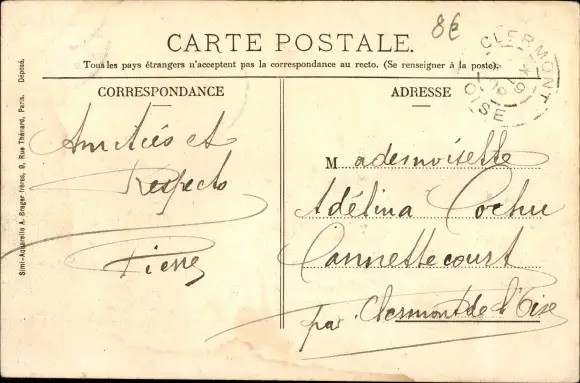 8€
CARTE POSTALE.
Tous les pays étrangers n'acceptent pas la correspondance au recto. (Se renseigner à la poste).
CORRESPONDANCE
ADRESSE
CLERMONT
OISE
Simi-Aquarelle A. Breger frères, 9, Rue Thénard, Paris. Déposé.
Amitiés et
Respects
Pierre
Mademoiselle
Adélina Cochu
Cannettecourt
par Clermont de l'Oise